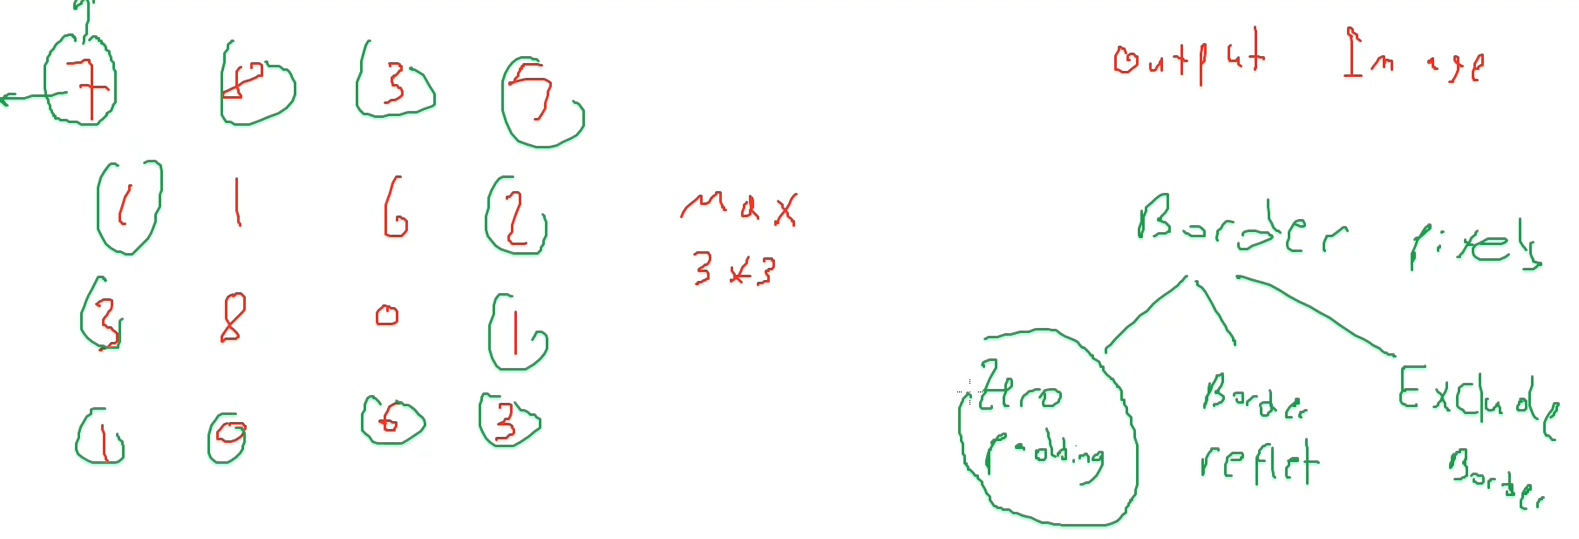 7 3 5
1 1 6 2
3 8 0 1
1 0 6 3
Max
3x3
Output Image
Border Pixels
Zero
Padding
Border
reflet
Exclude
Border